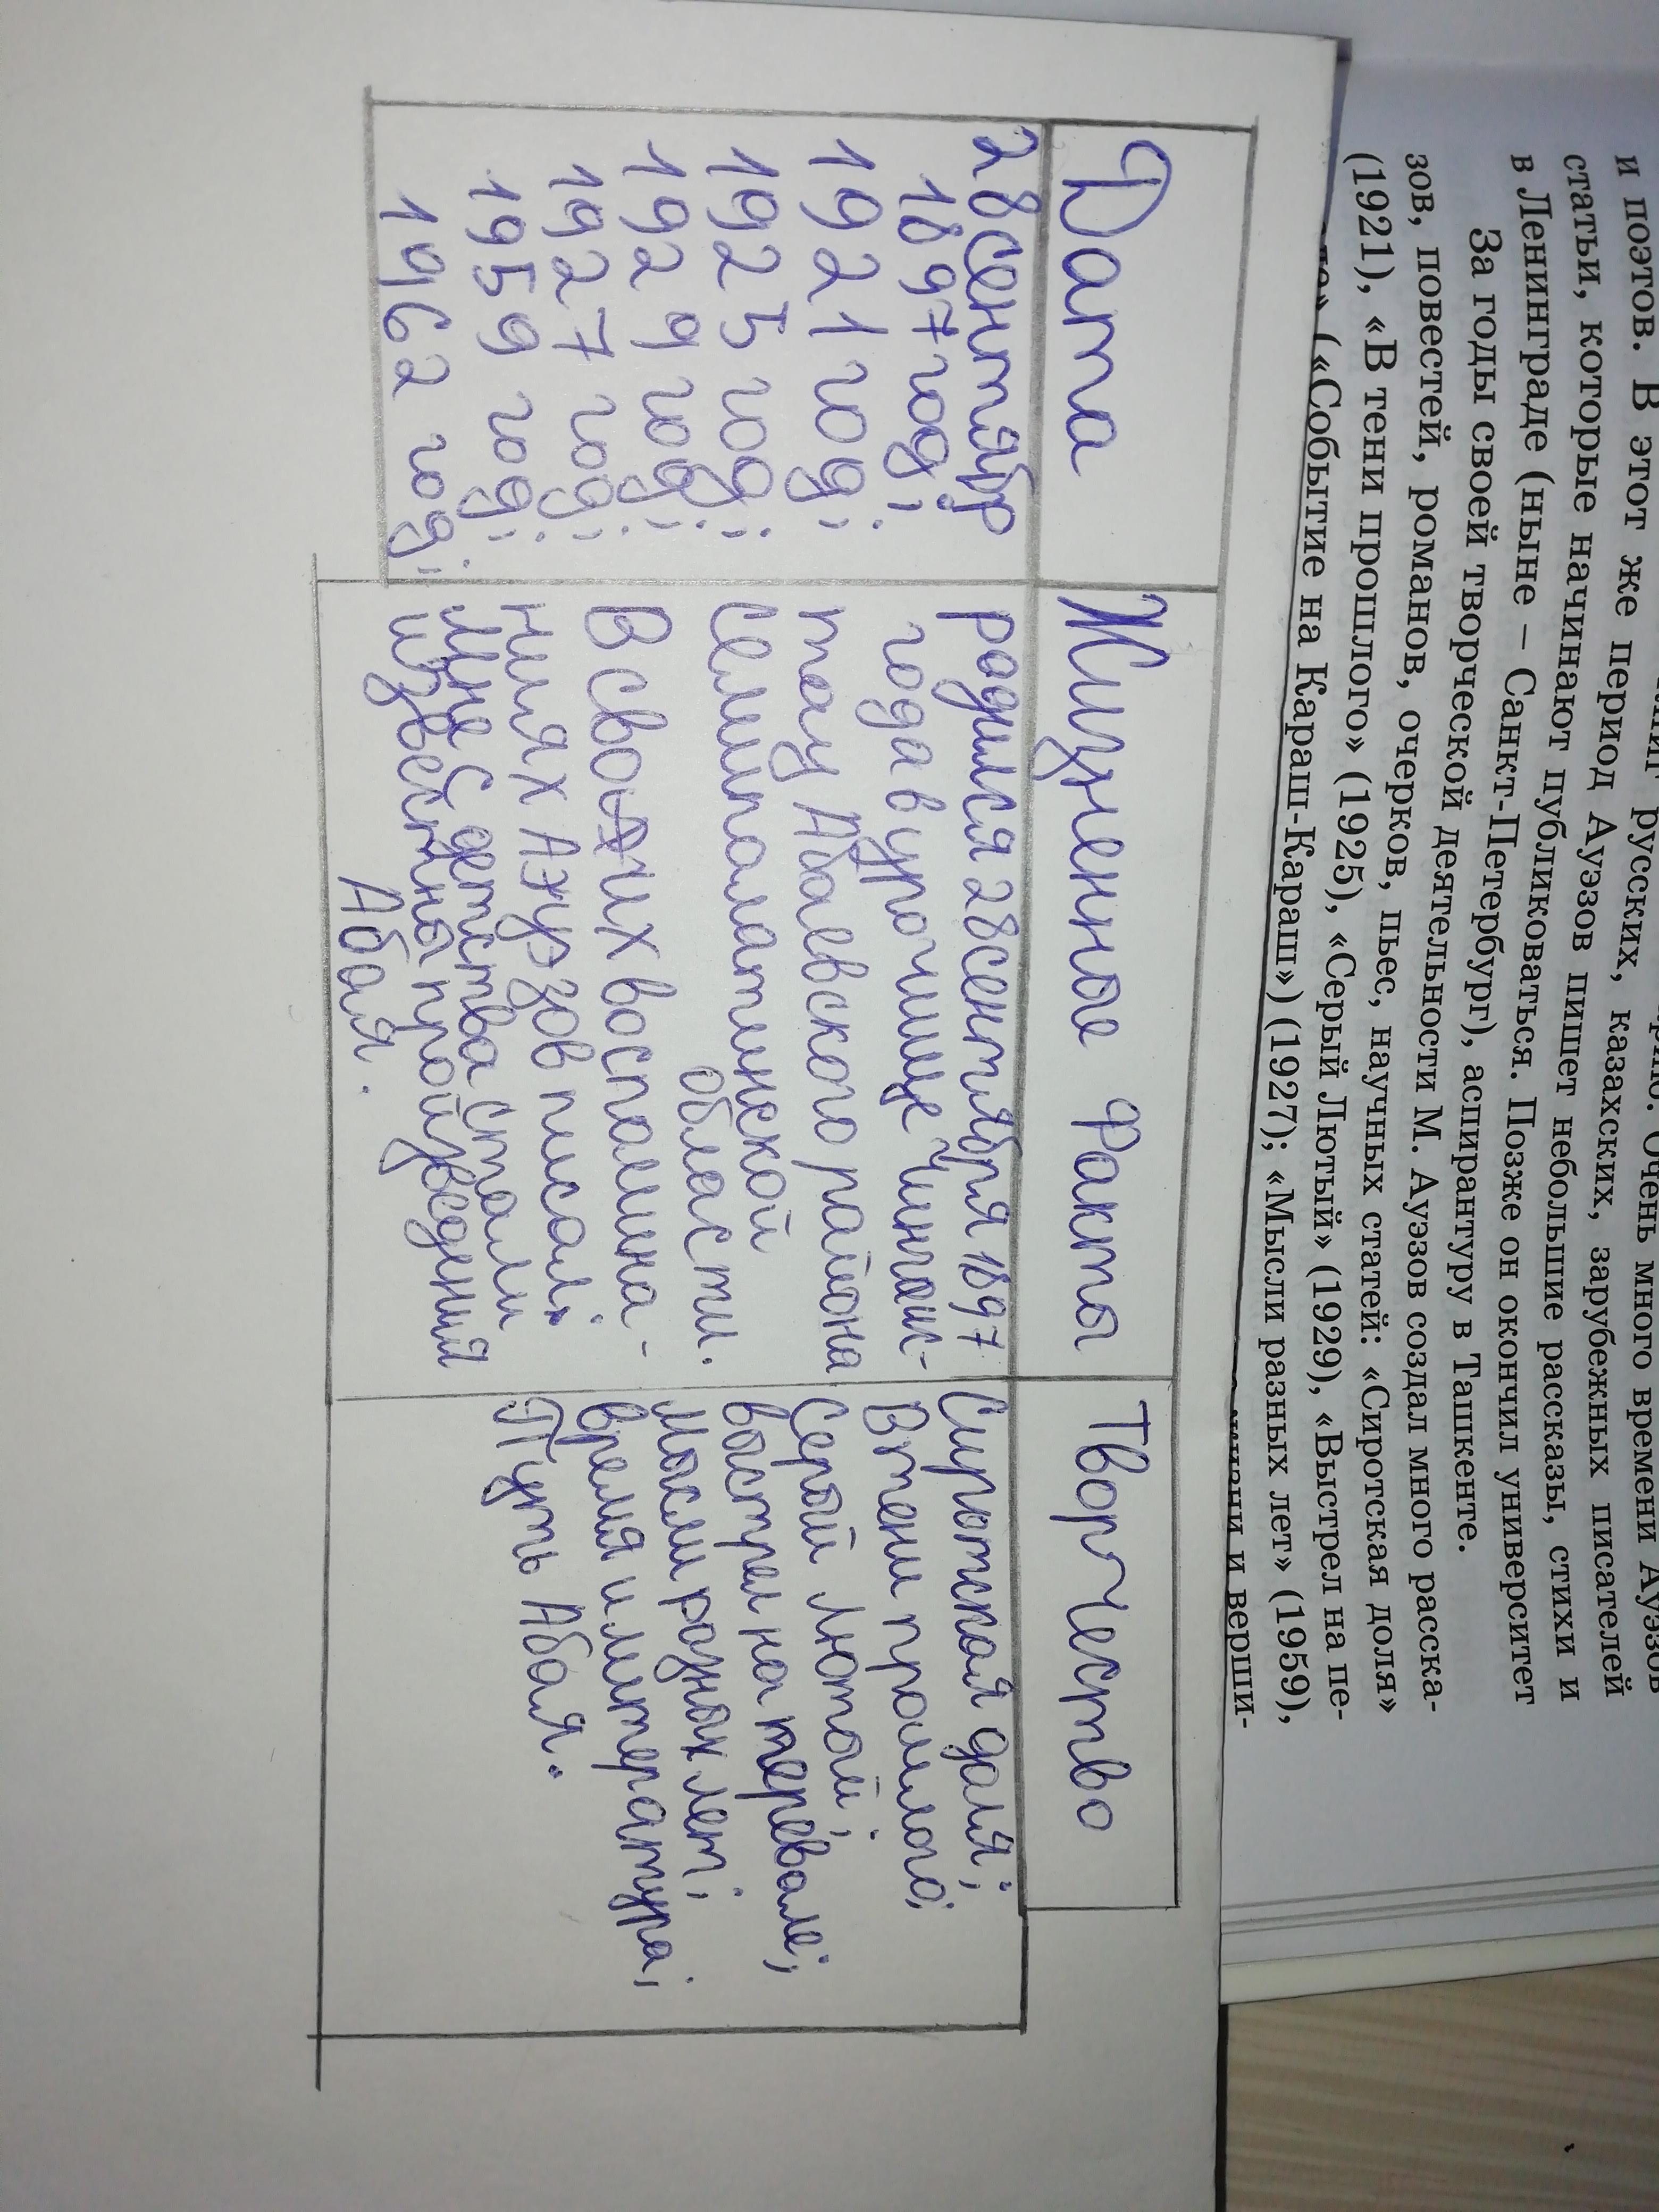 и поэтов. В этот же период Ауэзов пишет небольшие рассказы, стихи и
статьи, которые начинают публиковаться. Позже он окончил университет
в Ленинграде (ныне – Санкт-Петербург), аспирантуру в Ташкенте.
За годы своей творческой деятельности М. Ауэзов создал много расска-
зов, повестей, романов, очерков, пьес, научных статей: «Сиротская доля»
(1921), «В тени прошлого» (1925), «Серый Лютый» (1929), «Выстрел на пе-
(«Событие на Караш-Караш») (1927); «Мысли разных лет» (1959),
и верши-
Дата
28 сентябр
1897 год;
1921 год;
1925 год;
1929 год;
1927 год;
1959 год;
1962 год;
Жизненное Факты
родился 28 сентября 1897
года в урочище Чингыс-
тау Абаевского района
Семипалатинской
области.
В своих воспомина-
ниях Аэурзов писал:
Мне с детства стали
известны произведения
Абая.
Творчество
Сиротская доля;
В тени прошлого;
Серый Лютый;
выстрел на перевале;
Мысли разных лет;
время и литература;
Путь Абая.